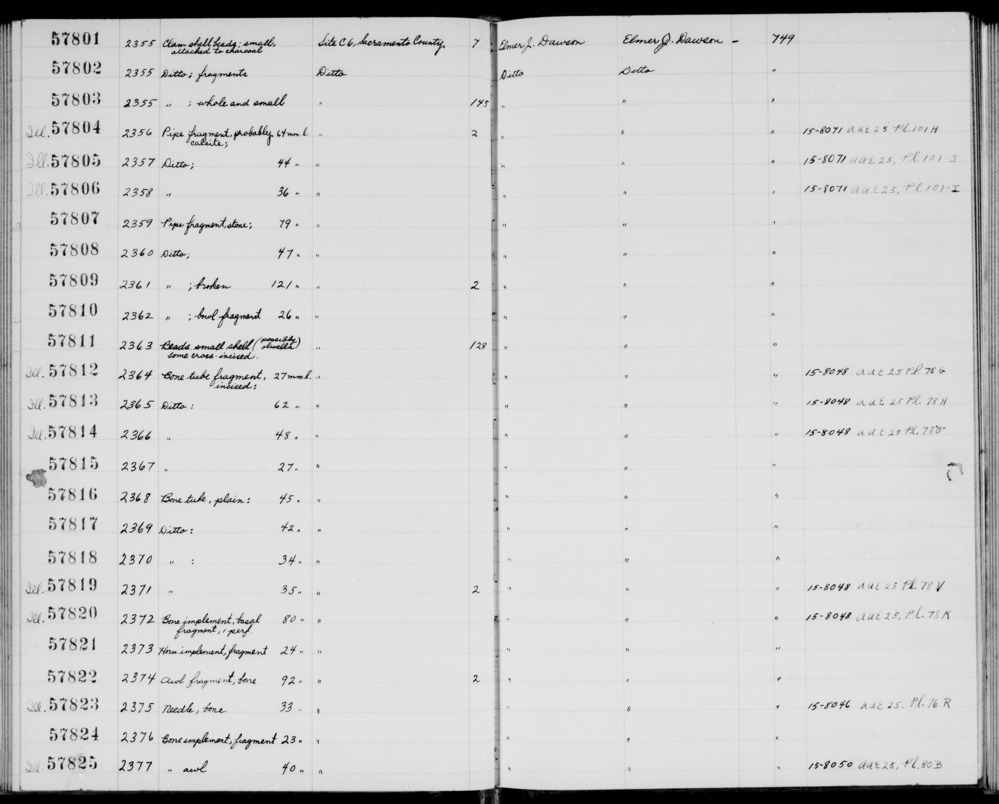 57801 2355 Clam shell beads; small, Site C6, Sacramento County, 7 Elmer J. Dawson Elmer J. Dawson – 749
attached to charcoal
57802 2355 Ditto; fragments Ditto Ditto Ditto "
57803 2355 " ; whole and small " 145 " " "
Ill. 57804 2356 Pipe fragment, probably 64 mm. l. " 2 " " " 15-8071 AAE 25 Pl. 101 H
calcite;
Ill. 57805 2357 Ditto; 44 " " " " " 15-8071 AAE 25, Pl. 101-J
Ill. 57806 2358 " 36 " " " " " 15-8071 AAE 25, Pl. 101-I
57807 2359 Pipe fragment, stone; 79 " " " " "
57808 2360 Ditto; 47 " " " " "
57809 2361 " ; broken 121 " " 2 " " "
57810 2362 " ; bowl fragment 26 " " " " "
57811 2363 Beads small shell (possibly olivella) " 128 " " "
some cross-incised.
Ill. 57812 2364 Bone tube fragment, 27 mm. l. " " " " 15-8048 AAE 25 Pl 78 G
incised:
Ill. 57813 2365 Ditto: 62 " " " " " 15-8048 AAE 25 Pl. 78 H
Ill. 57814 2366 " 48 " " " " " 15-8048 AAE 25 Pl. 78
57815 2367 " 27 " " " " "
57816 2368 Bone tube, plain: 45 " " " " "
57817 2369 Ditto: 42 " " " " "
57818 2370 " : 34 " " " " "
Ill. 57819 2371 " 35 " " 2 " " " 15-8048 AAE 25 Pl. 78 V
Ill. 57820 2372 Bone implement, basal 80 " " " " " 15-8048 AAE 25, Pl. 78 K
fragment, 1 perf.
57821 2373 Horn implement, fragment 24 " " " " "
57822 2374 Awl fragment, bone 92 " " 2 " " "
Ill. 57823 2375 Needle, bone 33 " " " " " 15-8046 AAE 25. Pl. 76 R
57824 2376 Bone implement, fragment 23 " " " " "
Ill 57825 2377 " awl 40 " " " " " 15-8050 AAE 25, Pl. 80 B